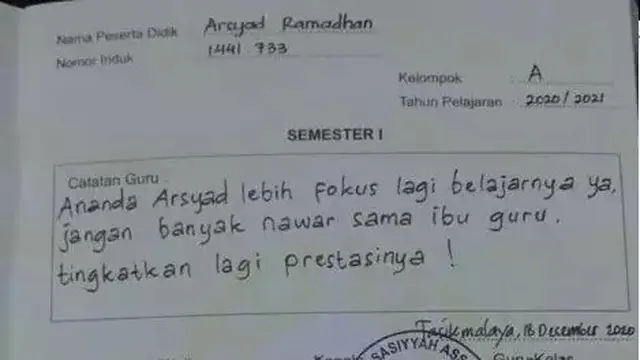 Nama Peserta Didik Arsyad Ramadhan
Nomor Induk 1441 733
Kelompok : A
Tahun Pelajaran : 2020/2021
SEMESTER I
Catatan Guru :
Ananda Arsyad lebih fokus lagi belajarnya ya,
jangan banyak nawar sama ibu guru.
tingkatkan lagi prestasinya !
Tasikmalaya, 18 Desember 2020
Guru Kelas